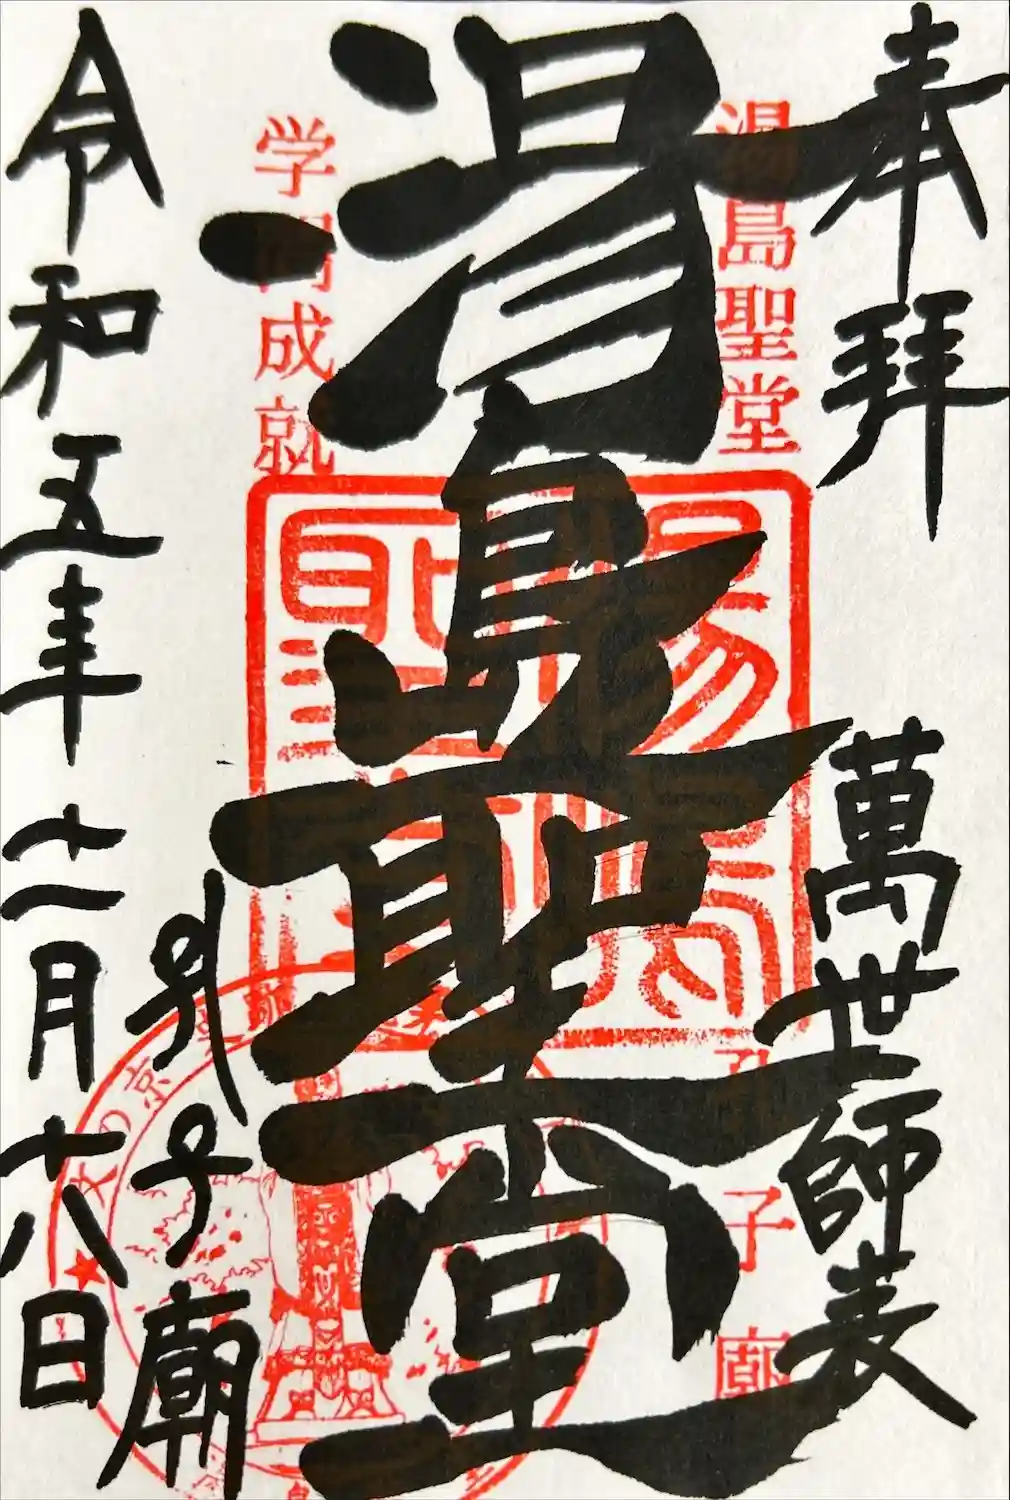 奉拝
萬世師表
湯島聖堂
孔子廟
湯島聖堂
学問成就
孔子廟
令和五年十一月十八日